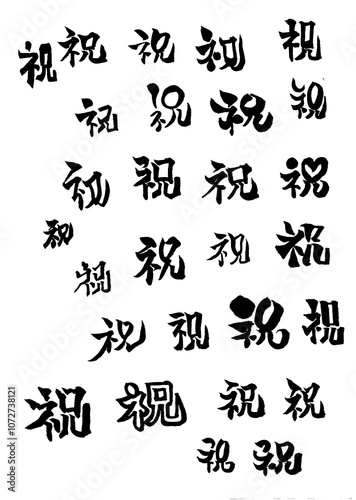 祝祝祝祝祝
祝祝祝祝
祝祝祝祝
祝祝祝祝祝
祝祝祝祝
祝祝祝祝
祝祝
Adobe Stock | #1072738121